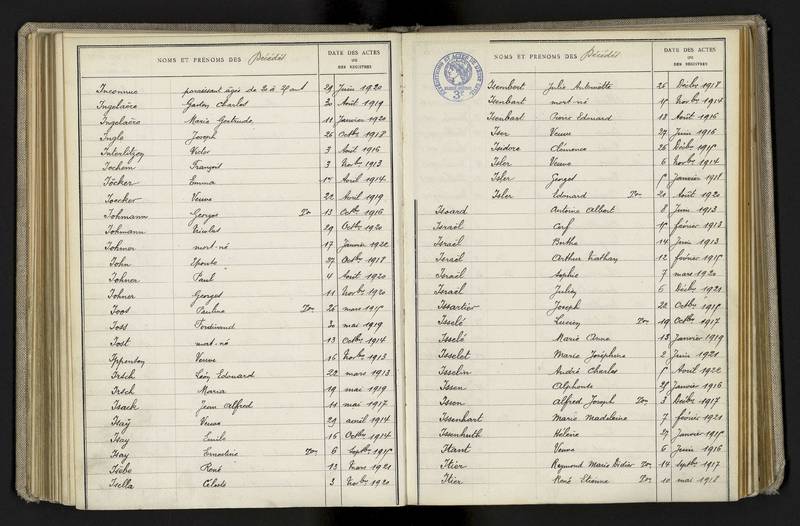 NOMS ET PRÉNOMS DES Décédés
DATE DES ACTES
OU
DES REGISTRES
Inconnue paraissant âgée de 20 à 25 ans 29 Juin 1920
Ingelaère Gaston Charles 30 Août 1919
Ingelaère Marie Gertrude 11 Janvier 1920
Ingle Joseph 26 Octbre 1918
Victor 3 Août 1916
Iochem François 3 Novbre 1913
Iöcker Emma 1er Avril 1914
Ioecker Veuve 22 Avril 1919
Iohmann Georges Don 13 Octbre 1916
Iohmann Nicolas 29 Octbre 1920
Iohmer mort-né 17 Janvier 1922
Iohn Epouse 27 Octbre 1918
Iohner Paul 4 Août 1920
Iohner Georges 11 Novbre 1920
Ioos Pauline Don 26 mars 1915
Ioss Ferdinand 30 mai 1919
Iost mort-né 13 Octbre 1914
Veuve 16 Novbre 1913
Irsch Léon Edouard 22 mars 1913
Irsch Maria 19 mai 1919
Isack Jean Alfred 11 mai 1917
Isaÿ Veuve 29 avril 1914
Isay Emile 16 Octbre 1914
Isay Ernestine Don 6 Septbre 1915
René 13 Mars 1921
Isella Céleste 3 Novbre 1920
NOMS ET PRÉNOMS DES Décédés
DATE DES ACTES
OU
DES REGISTRES
Isenbart Julie Antoinette 26 Décbre 1918
Isenbart mort-né 15 Novbre 1914
Isenbart Pierre Edouard 18 Août 1916
Iser Veuve 27 Juin 1916
Isidore Clémence 26 Décbre 1915
Isler Veuve 6 Novbre 1914
Isler Georges 5 Janvier 1918
Isler Edouard Don 20 Août 1920
Isoard Antoine Albert 8 Juin 1913
Israël Cerf 15 février 1913
Israël Berthe 14 Juin 1913
Israël Arthur Nathan 12 février 1915
Israël Sophie 7 mars 1920
Israël Julien 6 Décbre 1921
Issartier Joseph 22 Octbre 1915
Isselé Lucien Don 19 Octbre 1917
Isselé Marie Anne 13 Janvier 1919
Isselet Marie Joséphine 2 Juin 1921
Isselin André Charles 5 Août 1922
Issen Alphonse 25 Janvier 1916
Isson Alfred Joseph Don 3 Décbre 1917
Issenhart Marie Madeleine 7 février 1921
Issenhuth Hélène 27 Janvier 1915
Itant Veuve 6 Juin 1916
Itier Raymond Marie Didier Don 14 Septbre 1917
Itier René Etienne Don 10 mai 1918